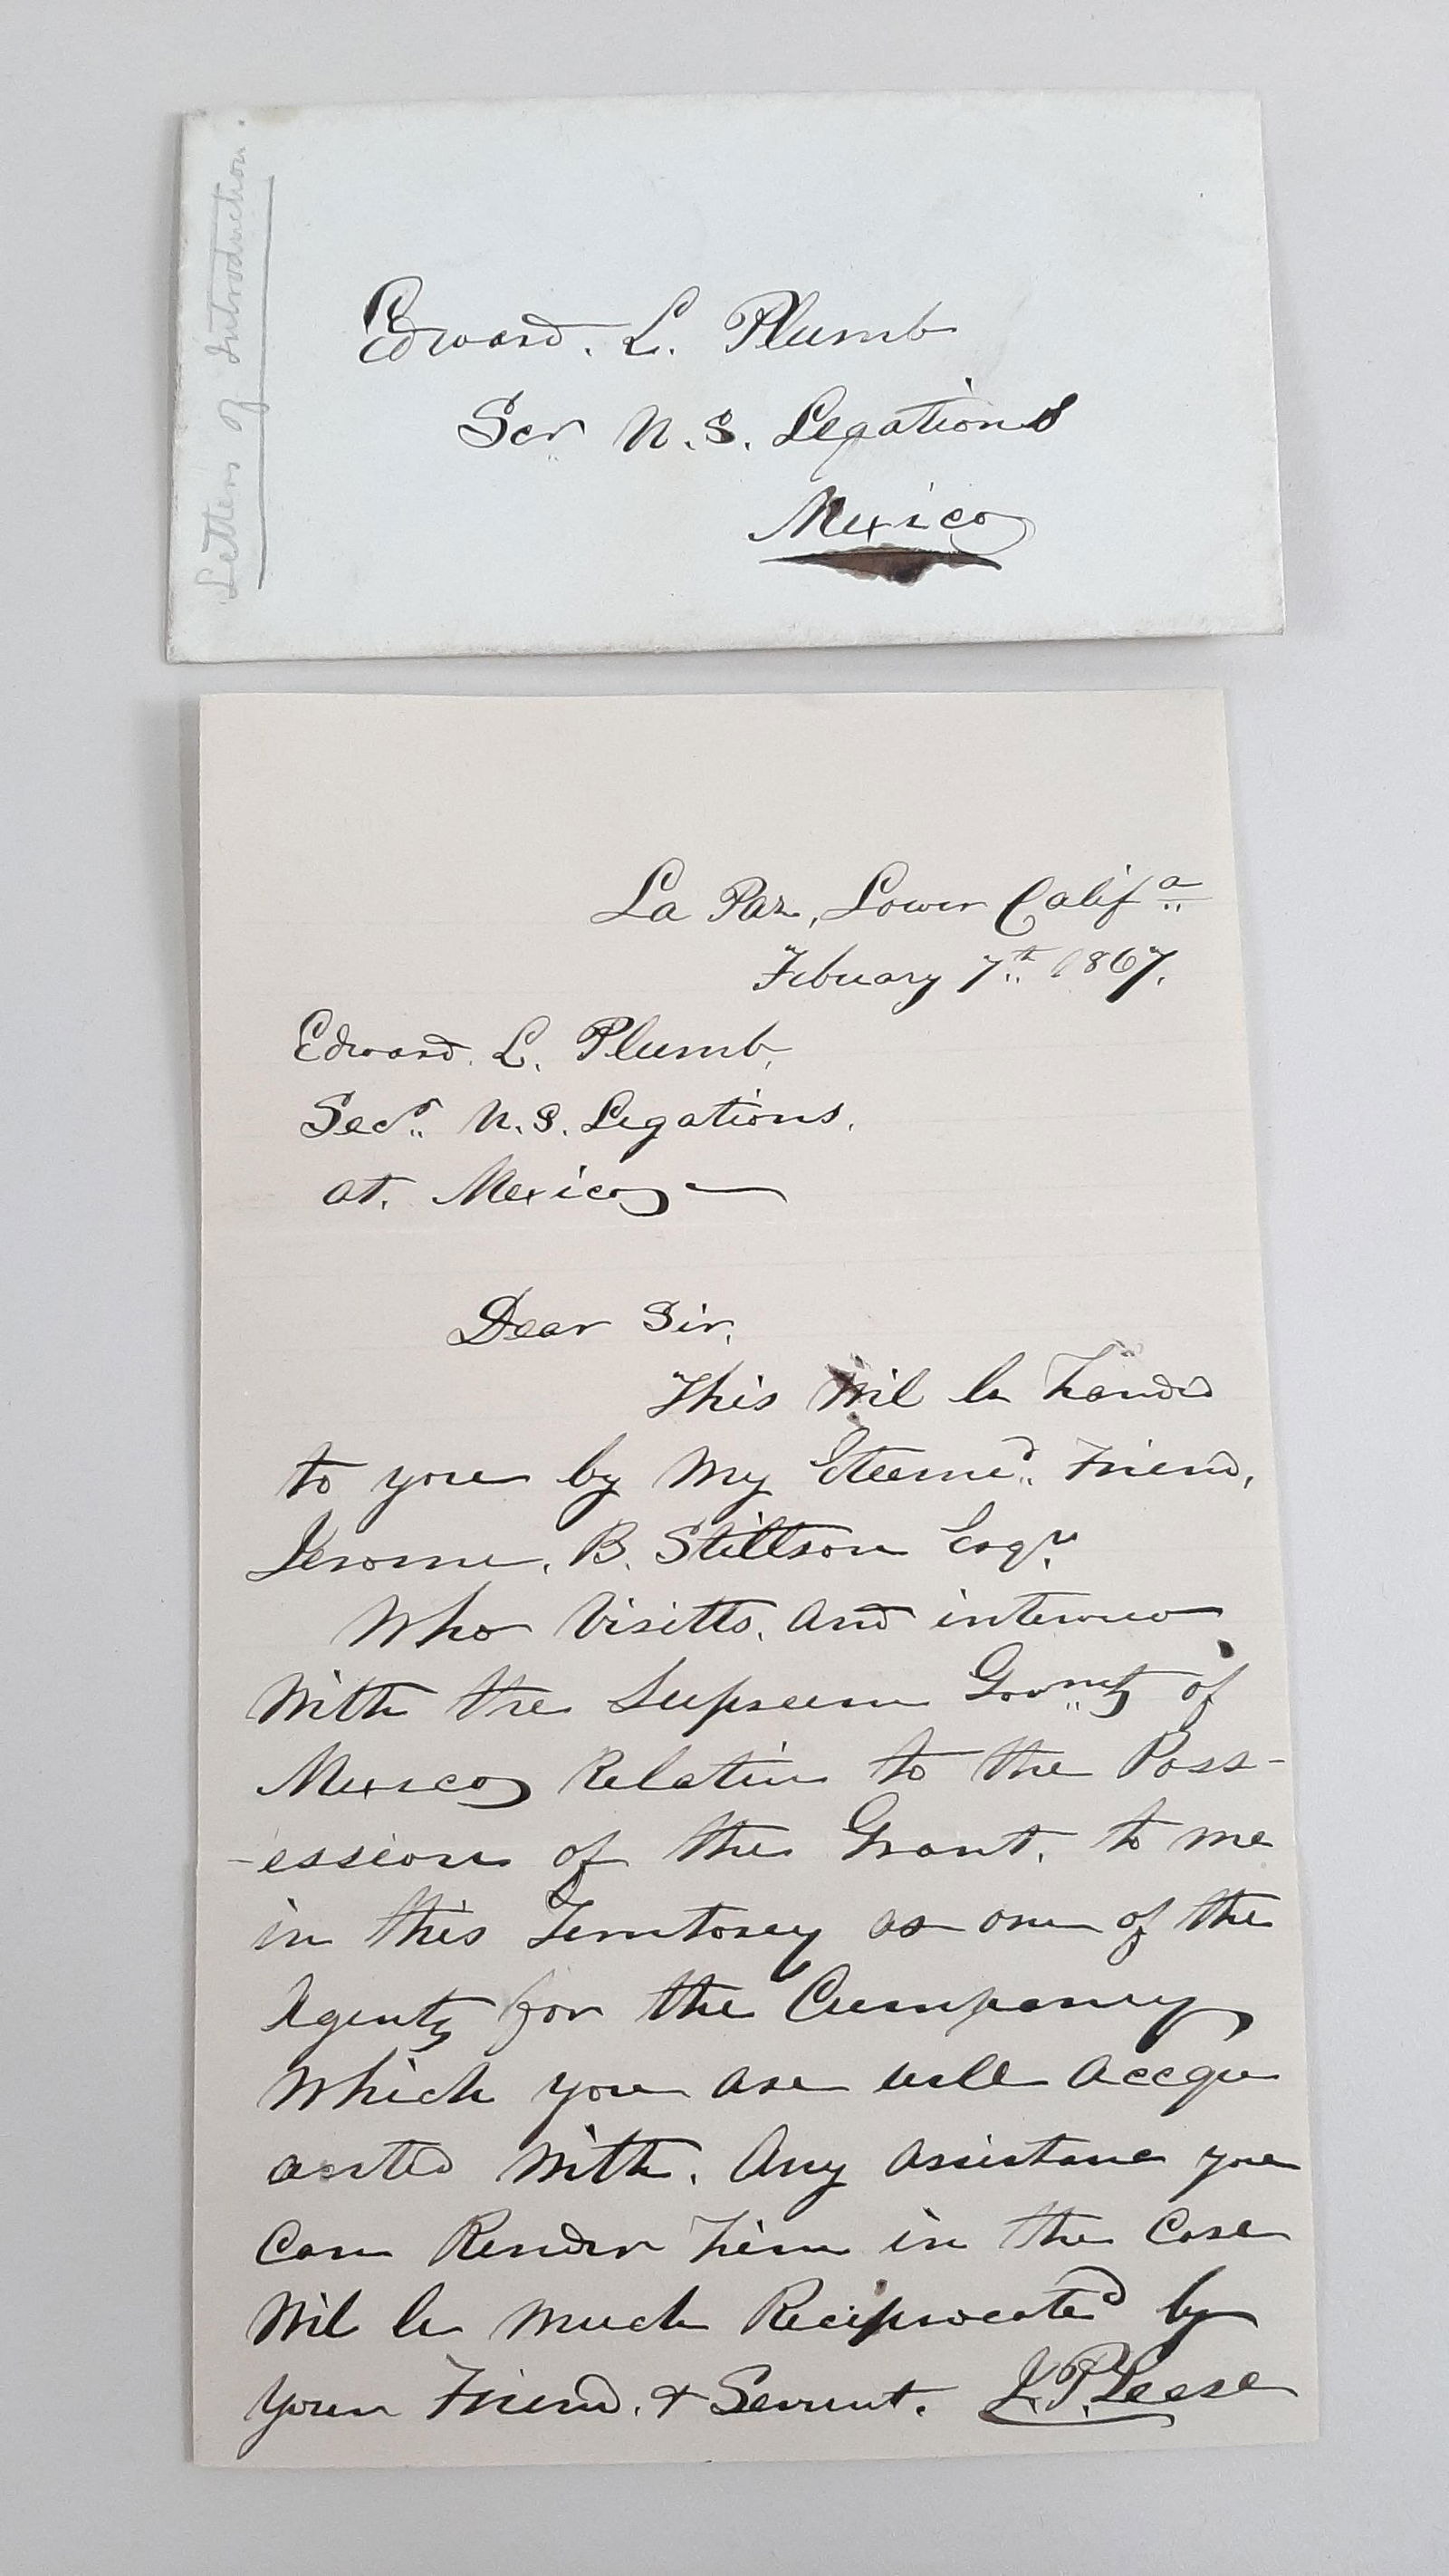 Letters of Introduction.
Edward. L. Plumb
Scr U.S. Legations
Mexico
La Paz, Lower Califa
Febuary 7th 1867.
Edward. L. Plumb,
Secr U.S. Legations,
at. Mexico
Dear Sir,
This Wil be handed
to you by My Esteemed Friend,
Jerome. B. Stillson Esqr
Who Visitts. and interview
With the Supreem Govmt of
Mexico Relative to the Poss-
-ession of the Grant. to me
in this Territorey as one of the
Agents for the Cumpaney
Which you are well accqu
ainted With. Any assistance you
Can Render him in the Case
Wil be Much Reciprocated by
Your Friend. & Servunt. J.P. Leese